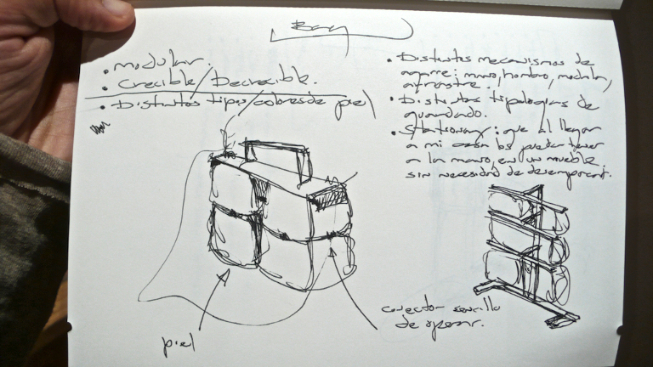 Bag
• modular.
• Crecible / Decrecible.
• Distintos tipos / cobres de piel
• Distintos mecanismos de
agarre: mano, hombro, mochila,
arrastre.
• Distintas tipologías de
guardado.
• Stationary: que al llegar
a mi casa los pueda tener
a la mano, en un mueble
sin necesidad de desempacar.
piel
conector sencillo
de operar.